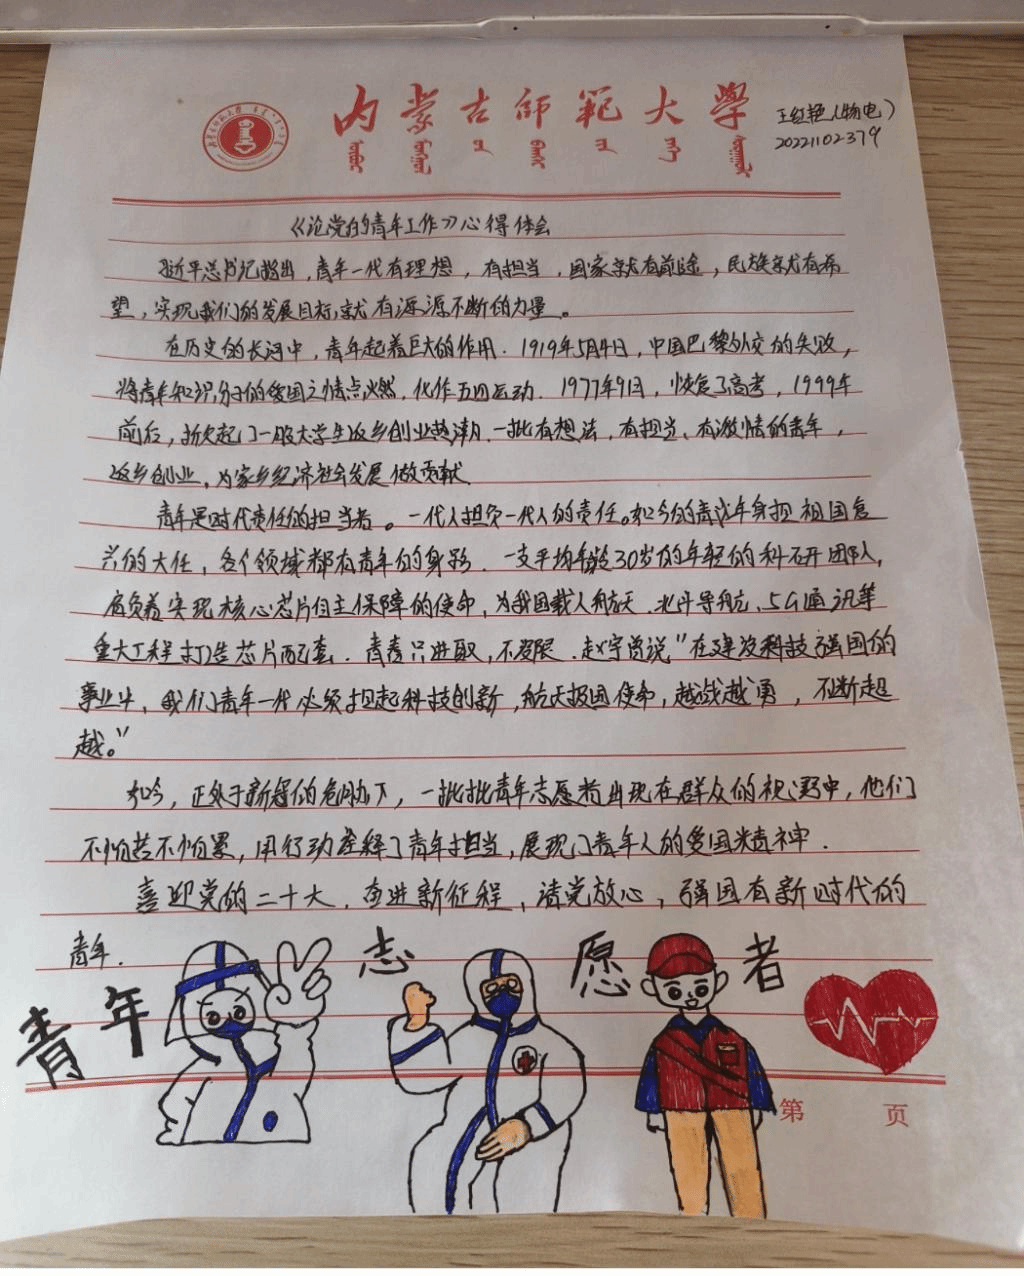 内蒙古师范大学
王红艳(物电)
20221102379
《论党的青年工作》心得体会
习近平总书记指出,青年一代有理想,有担当,国家就有前途,民族就有希
望,实现我们的发展目标就有源源不断的力量。
在历史的长河中,青年起着巨大的作用.1919年5月4日,中国巴黎外交的失败,
将青年知识分子的爱国之情点燃,化作五四运动.1977年9月,恢复了高考,1999年
前后,掀起了一股大学生返乡创业热潮.一批有想法、有担当、有激情的青年,
返乡创业,为家乡经济社会发展做贡献.
青年是时代责任的担当者。一代人担负一代人的责任。如今的青年身担祖国复
兴的大任,各个领域都有青年的身影.一支平均年龄30岁的年轻的科研团队,
肩负着实现核心芯片自主保障的使命,为我国载人航天、北斗导航、5G通讯等
重大工程打造芯片配套.青春只进取,不设限.赵宇曾说"在建设科技强国的
事业中,我们青年一代必须担起科技创新,航天报国使命,越战越勇,不断超
越。"
如今,正处于新冠的危险下,一批批青年志愿者出现在群众的视野中,他们
不怕苦不怕累,用行动诠释了青年担当,展现了青年人的爱国精神.
喜迎党的二十大,奋进新征程,请党放心,强国有新时代的
青年.
青年志愿者
第 页